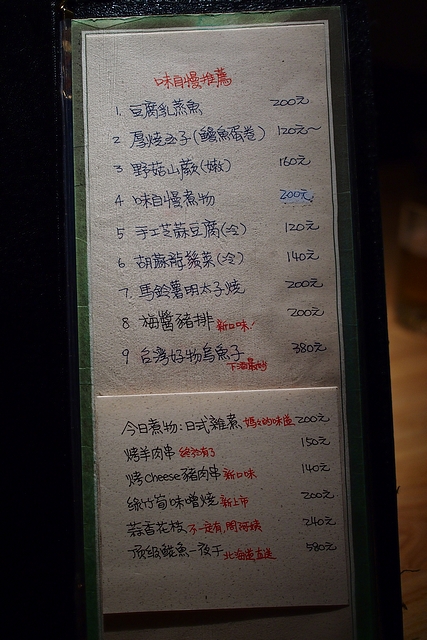 味自慢推薦
1. 豆腐乳蒸魚 200元
2 厚燒玉子(鰻魚蛋卷) 120元~
3 野菇山蕨(嫩) 160元
4 味自慢煮物 200元
5 手工芝蔴豆腐(冷) 120元
6 胡蔴龍鬚菜(冷) 140元
7. 馬鈴薯明太子燒 200元
8 梅醬豬排 新口味! 200元
9 台灣好物烏魚子 380元
下酒最妙
今日煮物:日式雜煮 媽媽的味道 200元
烤羊肉串 終於有了 150元
烤cheese豬肉串 新口味 140元
綠竹筍味噌燒 新上市 200元
蒜香花枝 不一定有,問阿姨 240元
頂級鯖魚一夜干 北海道直送 580元